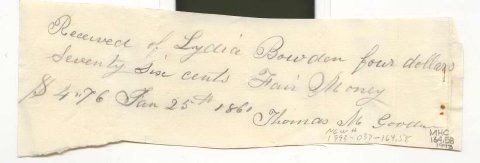 Received of Lydia Bowden four dollars
Seventy Six cents Fair Money
$ 4.76 Jan 25th 1861
Thomas M
NEW #
1992-037-164.58
MHC
164.58